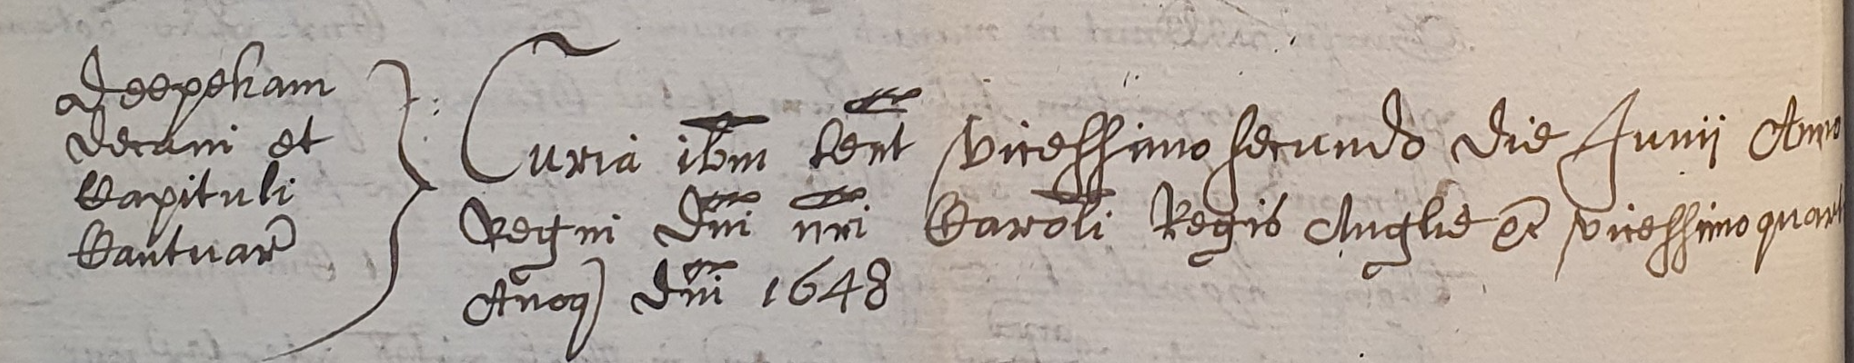 Deepeham
decani et
Capituli
Cantuar
Curia ibm tent vicessimo secundo die Junii Anno
Regni Dni nri Caroli Regis Anglie &c vicessimo quart
Anoq Dni 1648